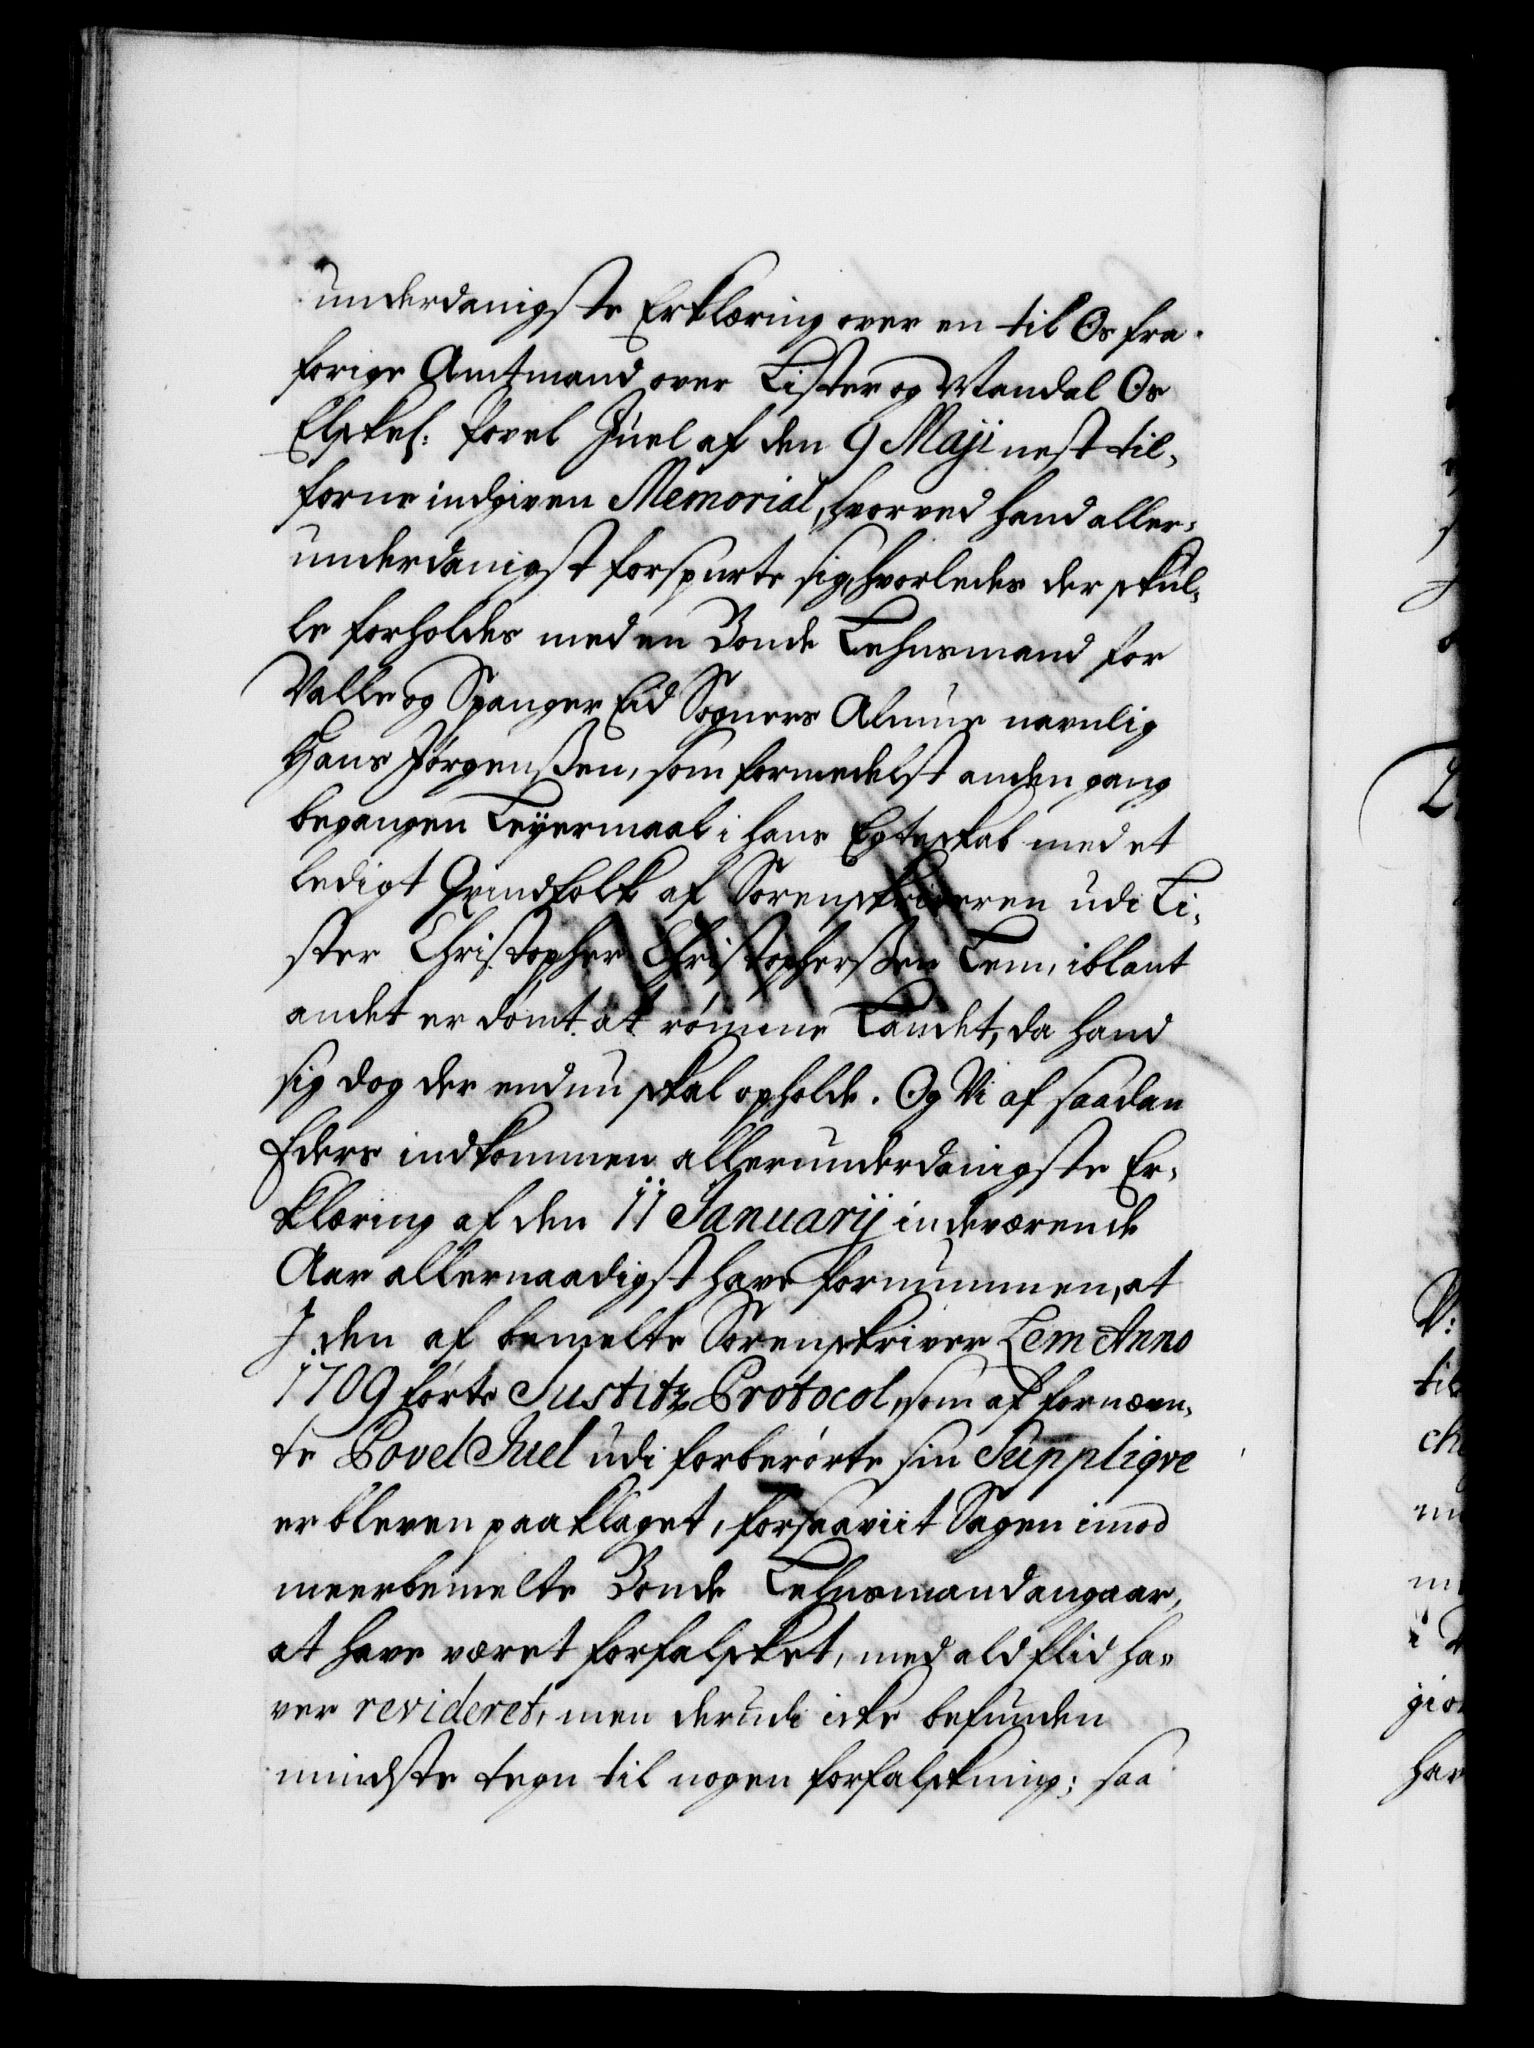 underdanigste Erklæring over en til Os fra
forige Amtmand over Lister og Mandal Os
Elskel: Povel Juel af den 9 Maji nest til,
forne indgiven Memorial, hvorved hand aller,
underdanigst forspurte sig, hvorledes der skul,
le forholdes med en Bonde Lehnsmand for
Valle og Spanger Eid Sogners Almue navnlig
Hans Jørgenssen, som formedelst anden gang
begangen Leyermaal i hans Egteskab med et
ledigt Qvindfolk af Sorenskriveren udi Li,
ster Christopher Christopherssen Lem, iblant
andet er dømt at rømme Landet, da hand
sig dog der endnu skal opholde. Og Vi af saadan
Eders indkommen allerunderdanigste Er,
klæring af den 11 Januarij indeværende
Aar allernaadigst have fornummen, at
J den af bemelte Sorenskriver Lem Anno
1709 førte Justitz Protocol, som af fornævn,
te Povel Juel udi forberørte sin Suppliqve
er bleven paaklaget, forsaaviit Sagen imod
meerbemelte Bonde Lehnsmand angaar,
at have været forfalsket, med ald flid ha,
ver revideret, men derudi icke befunden
mindste tegn til nogen forfalskning; saa